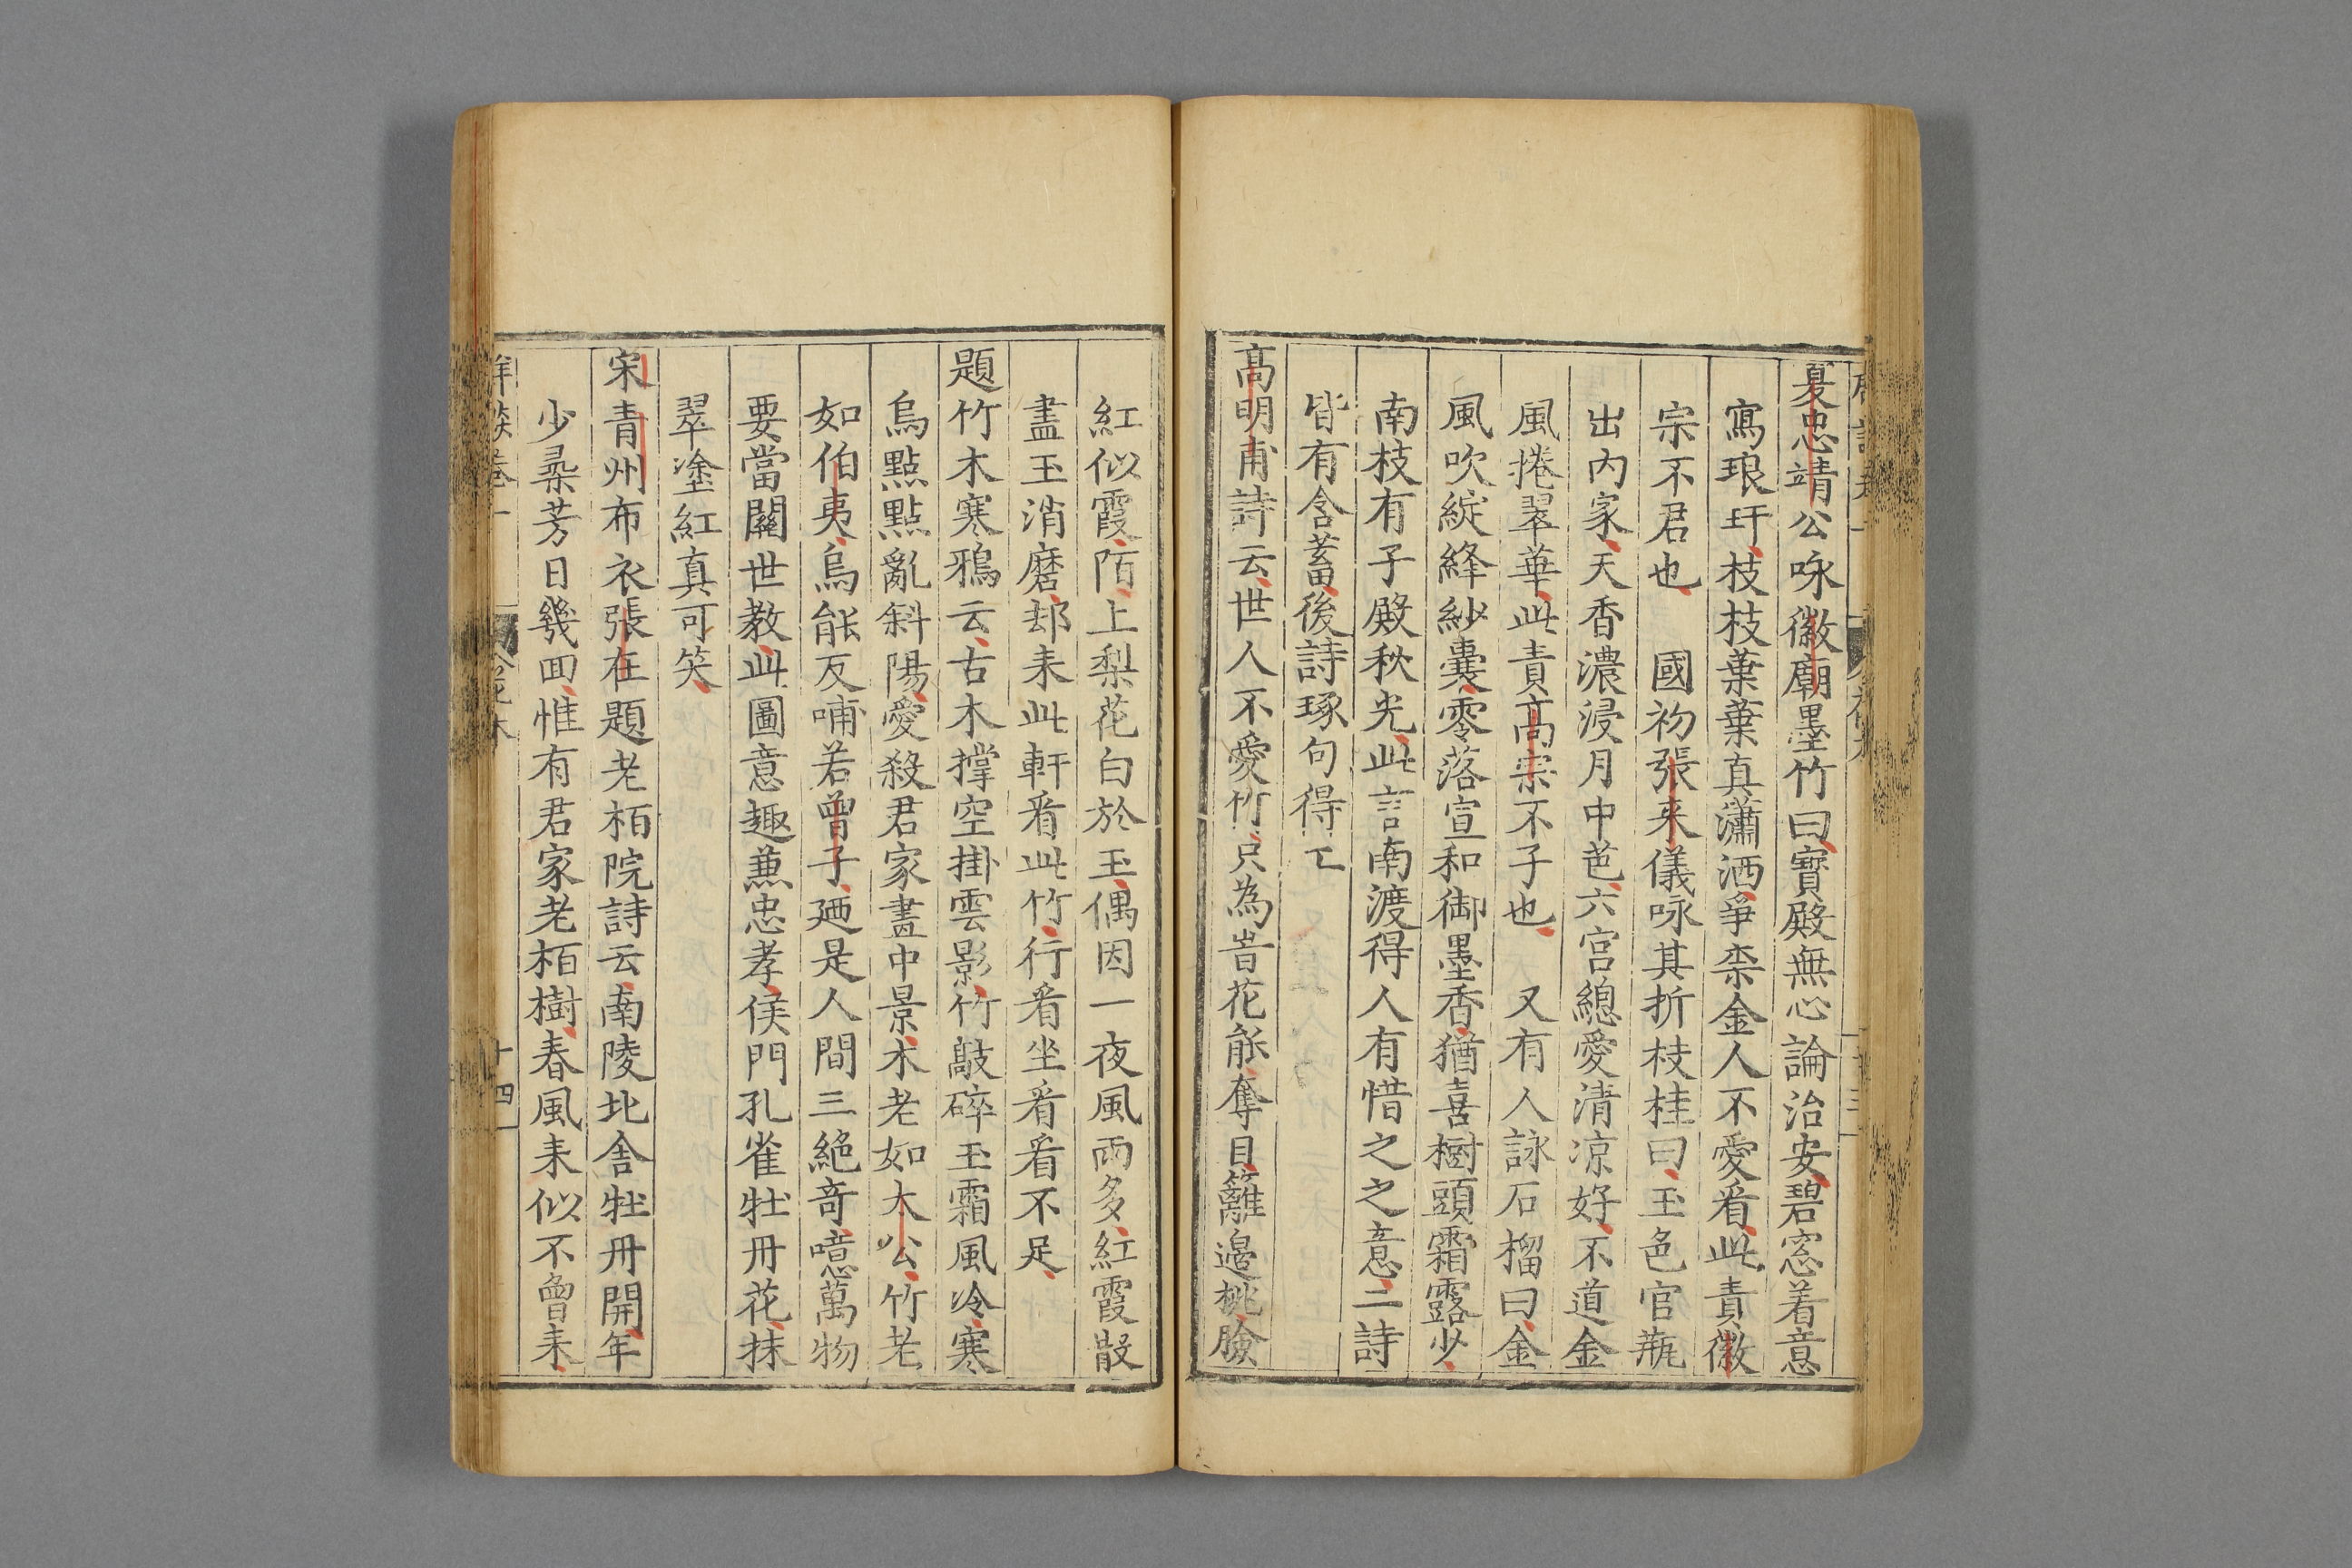 夏忠靖公咏徽廟墨竹曰寳殿無心論治安碧窓着意
寫琅玕枝枝葉葉真瀟洒爭柰金人不愛看此責徽
宗不君也　國初張来儀咏其折枝桂曰玉色官瓶
出内家天香濃浸月中芭六宫緫愛清凉好不道金
風捲翠華此責高宗不子也　又有人詠石榴曰金
風吹綻絳紗囊零落宣和御墨香猶喜樹頭霜露少
南枝有子殿秋光此言南渡得人有惜之之意二詩
皆有含蓄後詩琢句得工
高明甫詩云世人不愛竹只為昔花能奪目籬邉桃臉
紅似霞陌上梨花白於玉偶因一夜風雨多紅霞散
盡玉消磨却来此軒看此竹行看坐看看不足
題竹木寒鴉云古木撑空掛雲影竹敲碎玉霜風冷寒
烏㸃㸃亂斜陽愛殺君家畫中景木老如太公竹老
如伯夷烏能反哺若曾子廼是人間三絶竒噫萬物
要當關世教此圖意趣兼忠孝侯門孔雀牡丹花抹
翠塗紅真可笑
宋青州布衣張在題老栢院詩云南陵北舎牡丹開年
少㝷芳日幾囬惟有君家老栢樹春風来似不曾来
十四